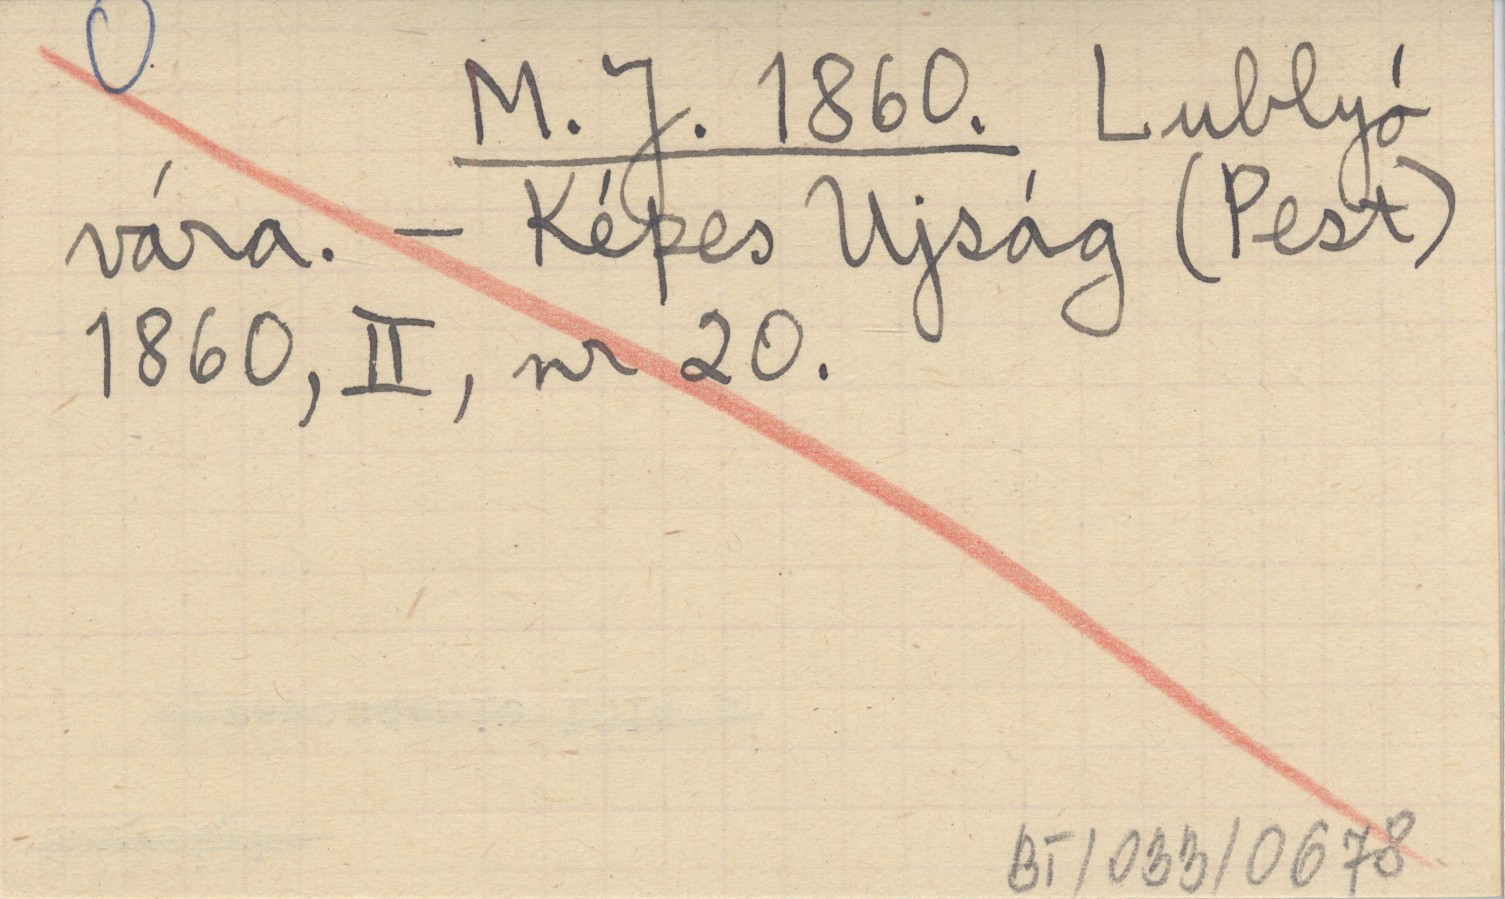 M. J. 1860. Lublyó
vára. — Képes Ujság (Pest)
1860, II, nr 20.
BT/033/0678